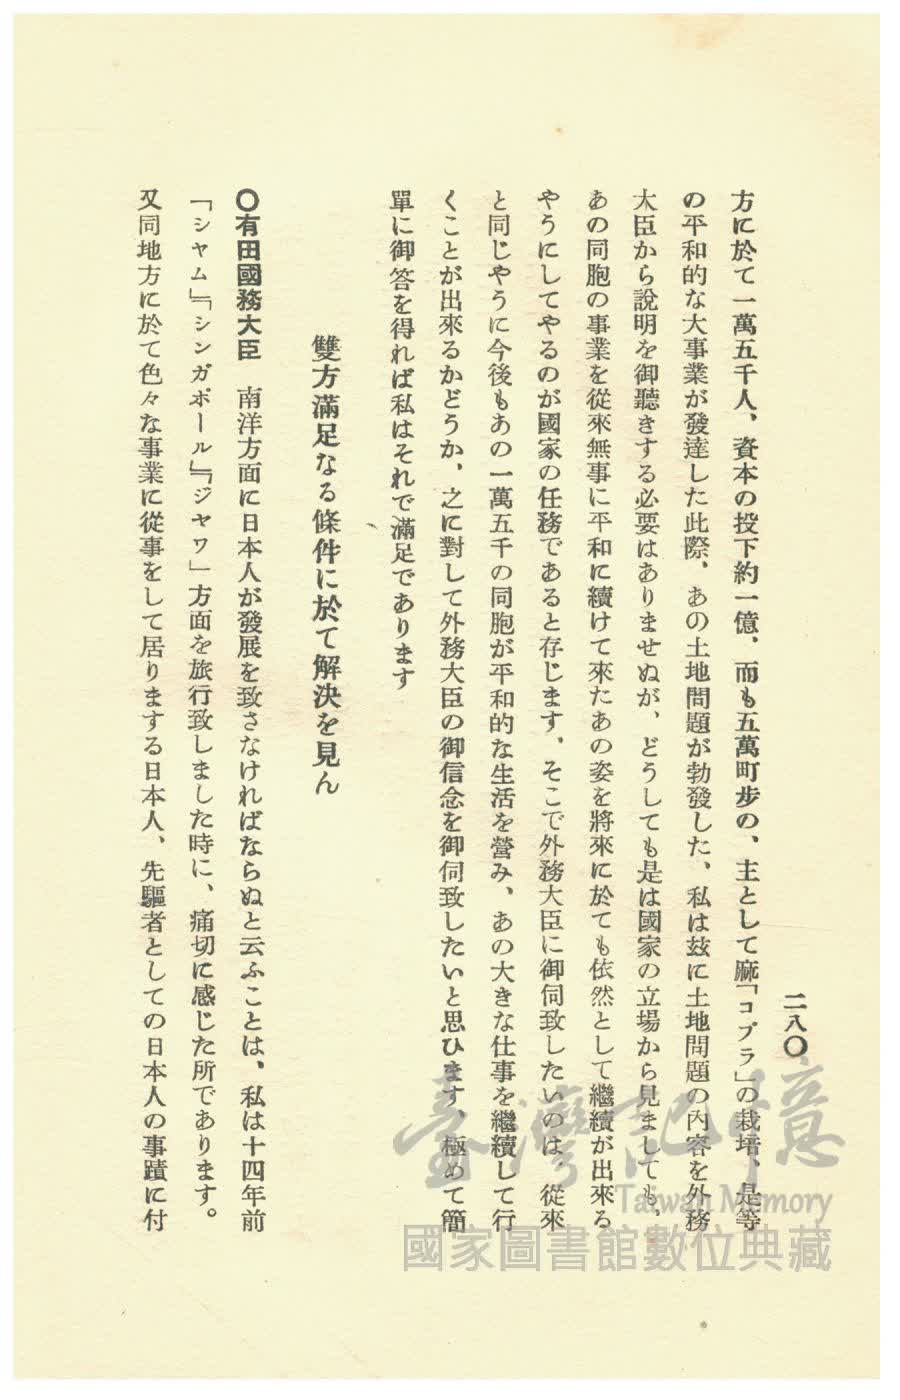 二八〇
方に於て一萬五千人、資本の投下約一億、而も五萬町步の、主として麻「コプラ」の栽培、是等
の平和的な大事業が發達した此際、あの土地問題が勃發した、私は玆に土地問題の內容を外務
大臣から說明を御聽きする必要はありませぬが、どうしても是は國家の立場から見ましても、
あの同胞の事業を從來無事に平和に續けて來たあの姿を將來に於ても依然として繼續が出來る
やうにしてやるのが國家の任務であると存じます、そこで外務大臣に御伺致したいのは、從來
と同じやうに今後もあの一萬五千の同胞が平和的な生活を營み、あの大きな仕事を繼續して行
くことが出來るかどうか、之に對して外務大臣の御信念を御伺致したいと思ひます、極めて簡
單に御答を得れば私はそれで滿足であります
雙方滿足なる條件に於て解決を見ん
〇有田國務大臣　南洋方面に日本人が發展を致さなければならぬと云ふことは、私は十四年前
「シヤム」「シンガポール」「ジヤワ」方面を旅行致しました時に、痛切に感じた所であります。
又同地方に於て色々な事業に從事をして居りまする日本人、先驅者としての日本人の事蹟に付
臺灣記憶
Taiwan Memory
國家圖書館數位典藏